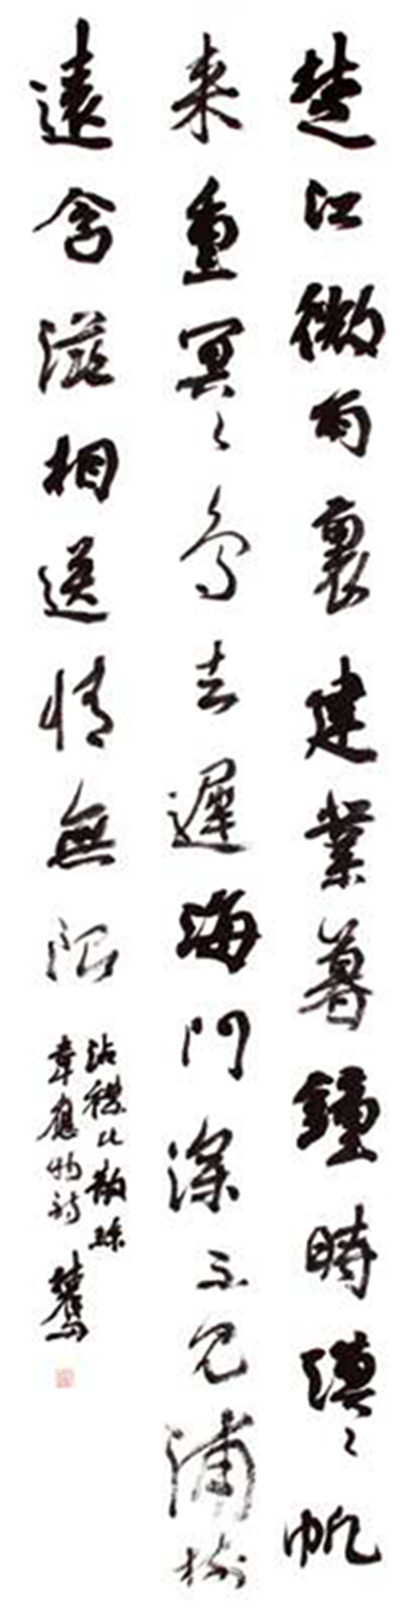 楚江微雨裏建業暮鐘時漠〻帆
来重冥〻鳥去遲海門深不見浦樹
遠含滋相送情無限
沾襟比散絲
韋應物詩